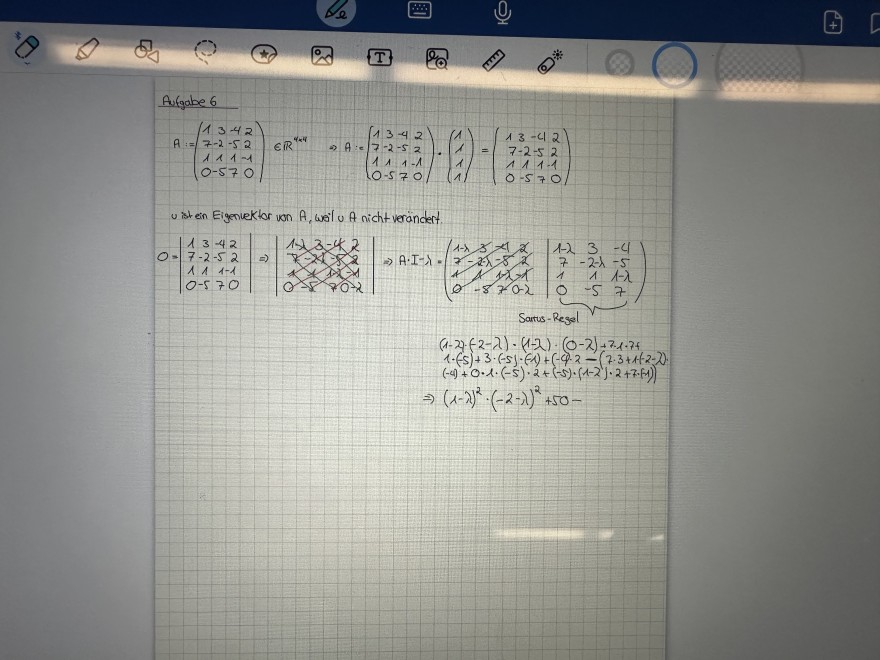 T
Aufgabe 6
A := (1 3 -4 2 / 7 -2 -5 2 / 1 1 1 -1 / 0 -5 7 0) ∈ ℝ^4×4 ⇒ A := (1 3 -4 2 / 7 -2 -5 2 / 1 1 1 -1 / 0 -5 7 0) · (1 / 1 / 1 / 1) = (1 3 -4 2 / 7 -2 -5 2 / 1 1 1 -1 / 0 -5 7 0)
υ ist ein Eigenvektor von A, weil υ A nicht verändert.
0 = |1 3 -4 2 / 7 -2 -5 2 / 1 1 1 -1 / 0 -5 7 0| ⇒ |1-λ 3 -4 2 / 7 -2-λ -5 2 / 1 1 1-λ -1 / 0 -5 7 0-λ| ⇒ A·I-λ = (1-λ 3 -4 2 / 7 -2-λ -5 2 / 1 1 1-λ -1 / 0 -5 7 0-λ | 1-λ 3 -4 / 7 -2-λ -5 / 1 1 1-λ / 0 -5 7)
Sarrus-Regel
(1-λ)·(-2-λ)·(1-λ)·(0-λ)+7·1·7+
1·(-5)+3·(-5)·(-1)+(-4)·2-(7·3+1·(-2-λ)·
(-4)+0·1·(-5)·2+(-5)·(1-λ)·2+7·(-1))
⇒ (1-λ)²·(-2-λ)²+50-